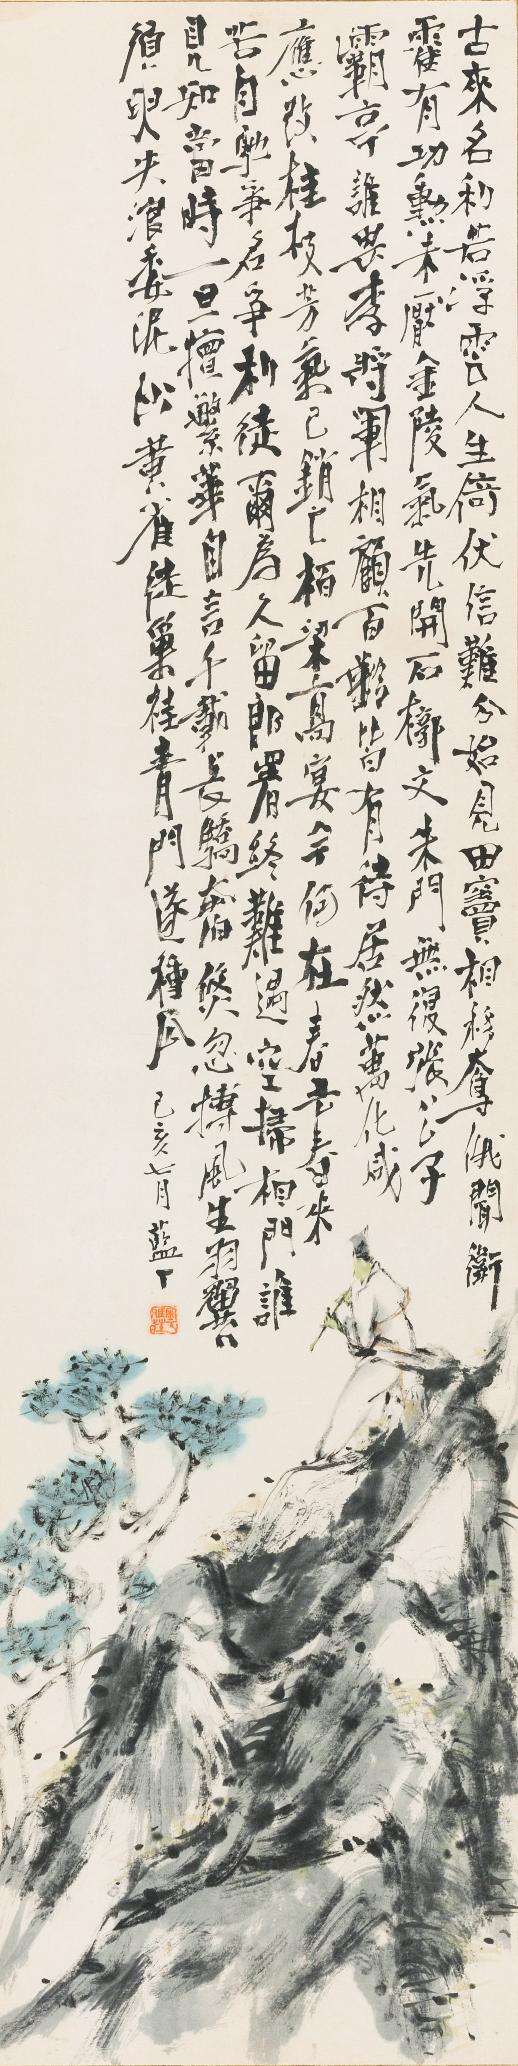 古來名利若浮雲人生倚伏信難分始見田竇相移奪俄聞衛
霍有功勲未厭金陵氣先開石槨文朱門無復張公子
灞亭誰畏李將軍相顧百齡皆有待居然萬化咸
應改桂枝芳氣已銷亡栢梁高宴今何在春去春來
苦自馳爭名爭利徒爾為久留郎署終難遇空掃相門誰
見知當時一旦擅繁華自言千載長驕奢倏忽摶風生羽翼
須臾失浪委泥沙黃雀徒巢桂青門遂種瓜 己亥七月 藍丁